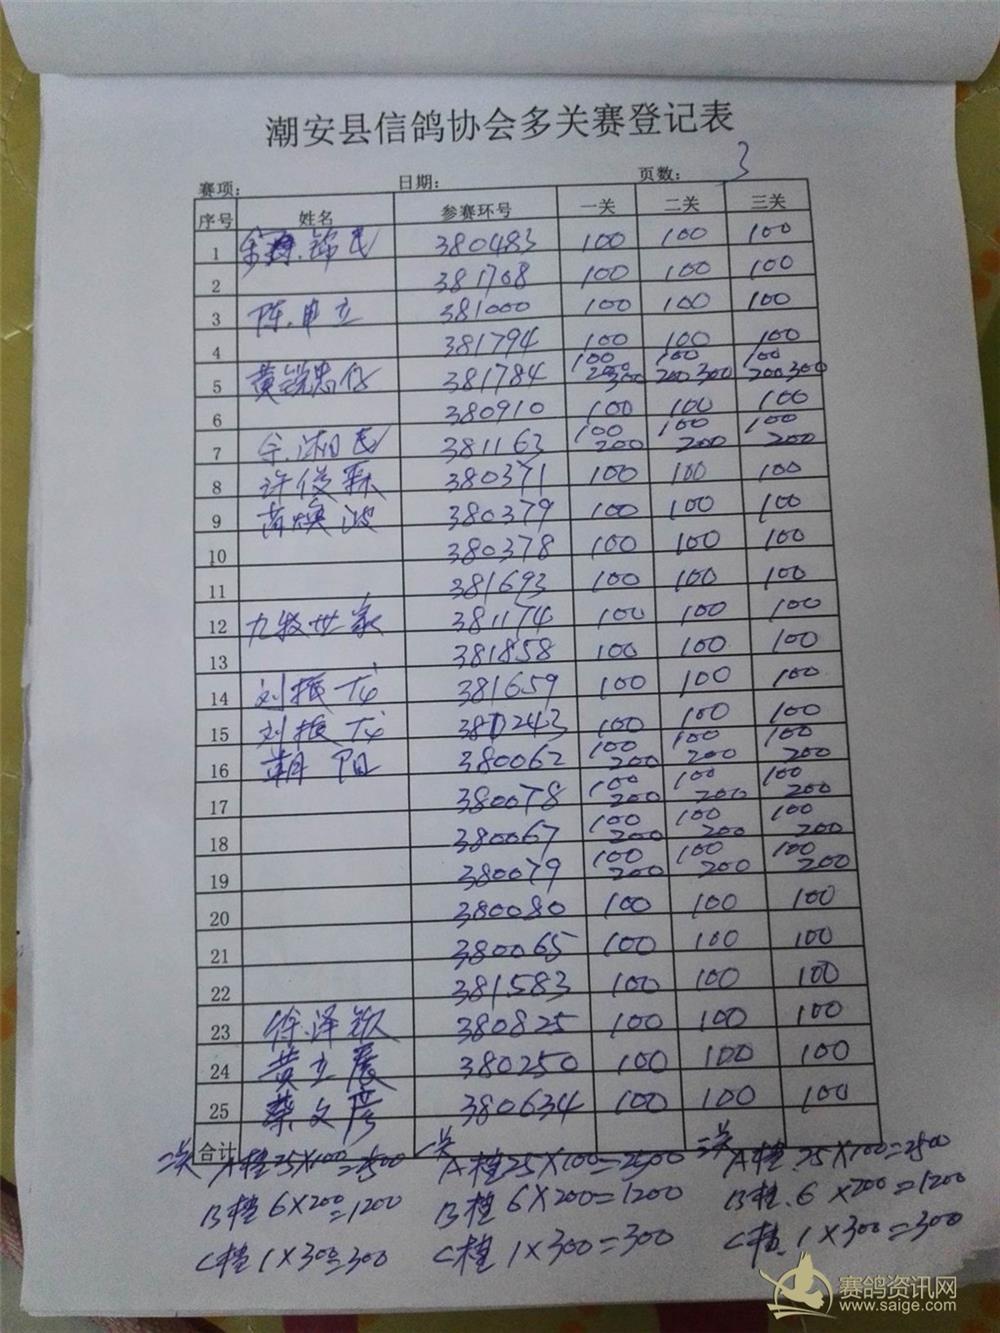 潮安县信鸽协会多关赛登记表
赛项： 日期： 页数： 3
序号 姓名 参赛环号 一关 二关 三关
1 锦民 380483 100 100 100
2 381708 100 100 100
3 陈 立 381000 100 100 100
4 381794 100 100 100
5 黄锐忠仔 381784 100 200 300 100 200 300 100 200 300
6 380910 100 100 100
7 湘民 381163 100 200 100 200 100 200
8 许俊 380371 100 100 100
9 黄焕波 380379 100 100 100
10 380378 100 100 100
11 381693 100 100 100
12 九牧世家 381174 100 100 100
13 381858 100 100 100
14 刘振 381659 100 100 100
15 刘振 243 100 100 100
16 朝阳 380062 100 200 100 200 100 200
17 380078 100 200 100 200 100 200
18 380067 100 200 100 200 100 200
19 380079 100 200 100 200 100 200
20 380080 100 100 100
21 380065 100 100 100
22 381583 100 100 100
23 徐泽钦 380825 100 100 100
24 黄立展 380250 100 100 100
25 蔡文彦 380634 100 100 100
合计
一关 A档25×100=2500 二关 A档25×100=2500 三关 A档.25×100=2500
B档6×200=1200 B档6×200=1200 B档.6×200=1200
C档1×300=300 C档1×300=300 C档.1×300=300
赛鸽资讯网
www.saige.com